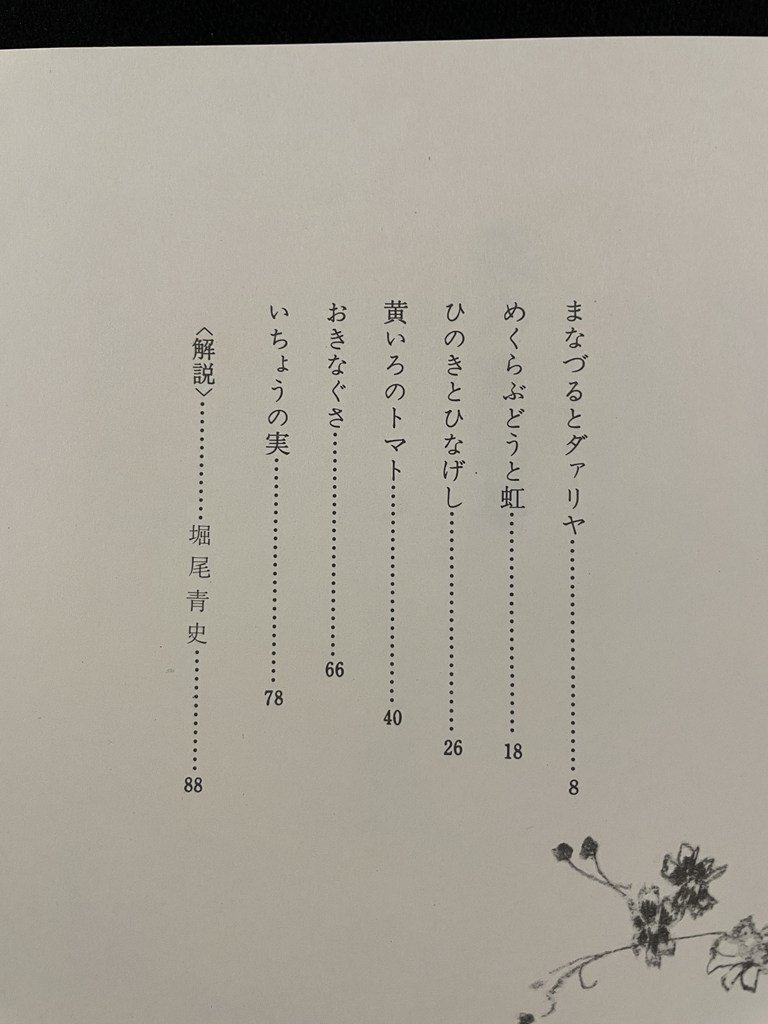 まなづるとダァリヤ……………………8
めくらぶどうと虹……………………18
ひのきとひなげし……………………26
黄いろのトマト……………………40
おきなぐさ……………………66
いちょうの実……………………78
〈解説〉…………堀尾青史…………88